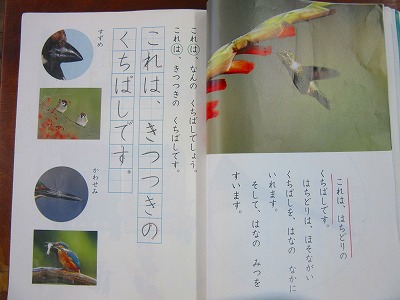 これは、はちどりの
くちばしです。
はちどりは、ほそながい
くちばしを、はなの なかに
いれます。
そして、はなの みつを
すいます。
これは、なんの くちばしでしょう。
これは、きつつきの くちばしです。
これは、きつつきの
くちばしです。
すずめ
かわせみ